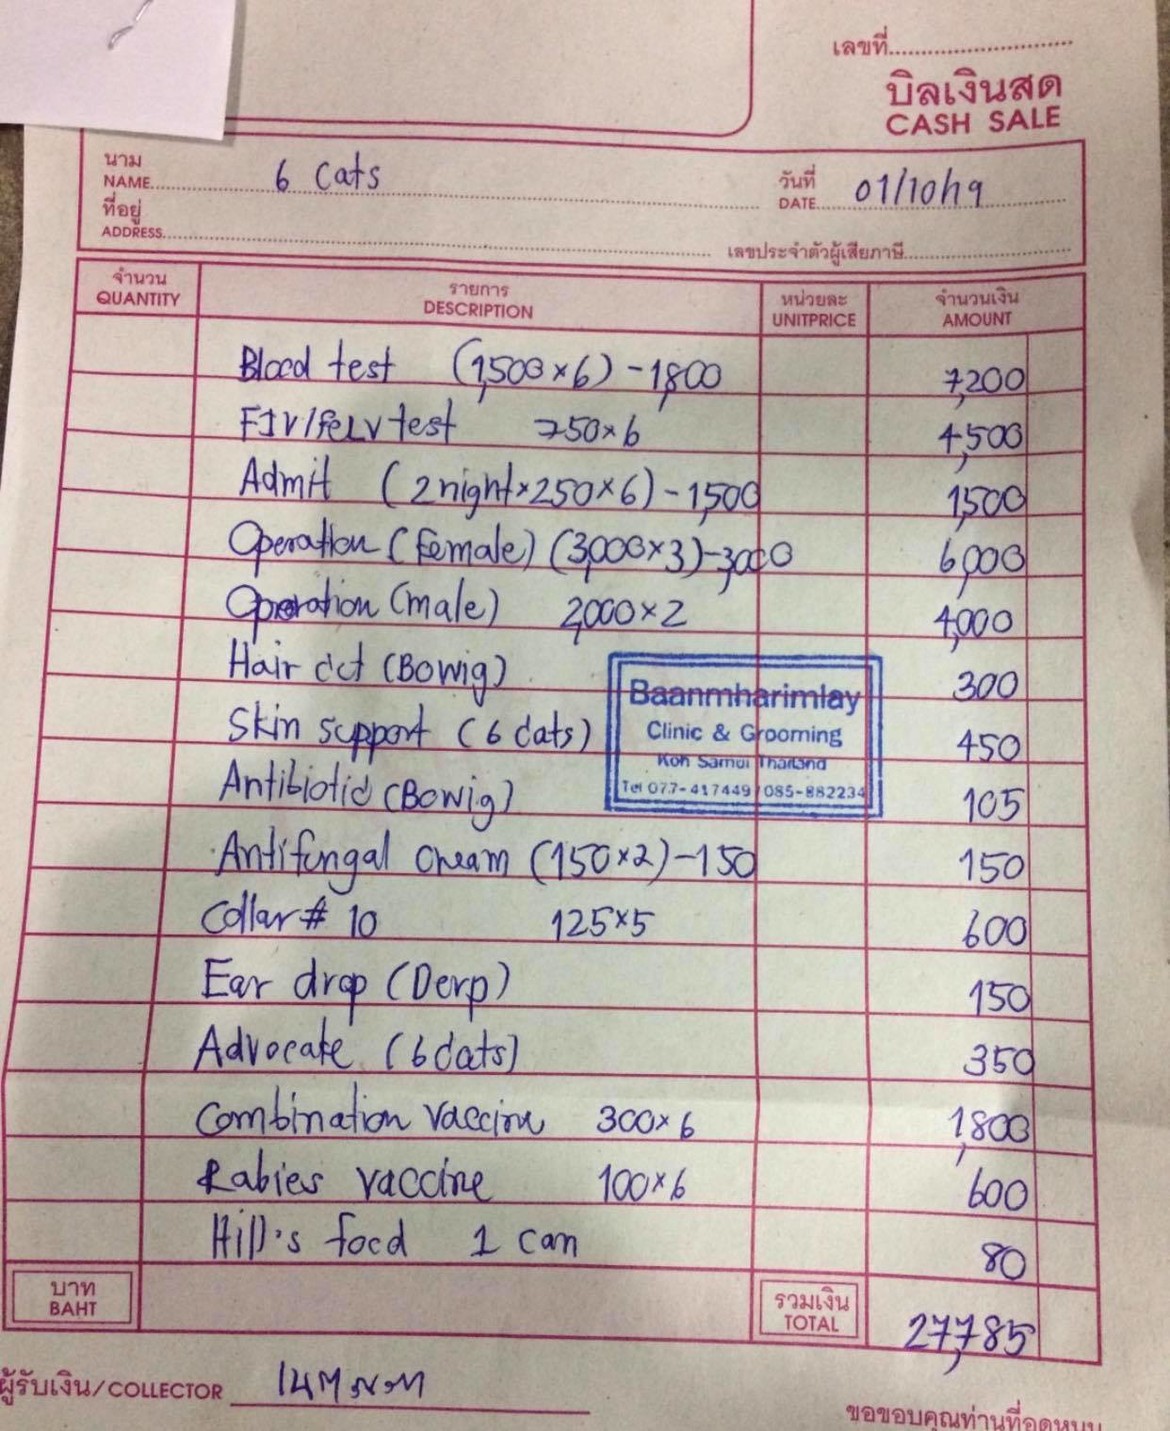 เลขที่
บิลเงินสด
CASH SALE
นาม
NAME 6 Cats
วันที่
DATE 01/10/19
ที่อยู่
ADDRESS
เลขประจำตัวผู้เสียภาษี
จำนวน QUANTITY รายการ DESCRIPTION หน่วยละ UNITPRICE จำนวนเงิน AMOUNT
Blood test (1,500×6) -1,800 7,200
FIV/FeLV test 750×6 4,500
Admit (2night×250×6) -1,500 1,500
Operation (Female) (3,000×3)-3,000 6,000
Operation (male) 2,000×2 4,000
Hair cut (Bowig) 300
Skin support (6 cats) 450
Antibiotic (Bowig) 105
Antifungal cream (150×2) -150 150
Collar # 10 125×5 600
Ear drop (Derp) 150
Advocate (6 cats) 350
Combination vaccine 300×6 1,800
Rabies vaccine 100×6 600
Hill's food 1 can 80
Baanmharimlay
Clinic & Grooming
Koh Samui Thailand
Tel 077-417449/085-882234
บาท
BAHT
รวมเงิน
TOTAL 27,785
ผู้รับเงิน/COLLECTOR
ขอขอบคุณท่านที่อุดหนุน